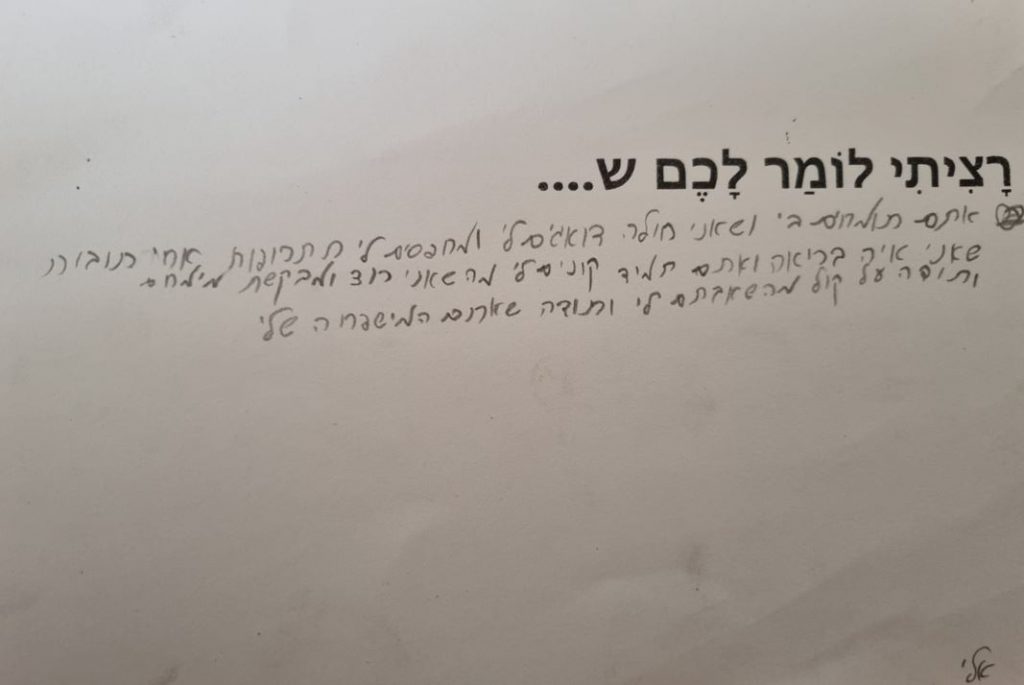 רָצִיתִי לוֹמַר לָכֶם ש....
אתם תומחים בי ושאני חולה דואגים לי ומחפסים לי תתרופות אחי תובות
שאני איה בריאה ואתם תמיד קונים לי מה שאני רוצ ומבקשת מילחם
ותודה על קול מה שאבתם לי ותודה שאתם המישפחה שלי
אלי